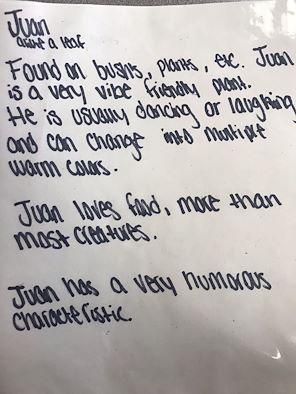 Juan
Found on bushs, plants, etc. Juan
is a very vibe friendly plant.
He is usually dancing or laughing
and can change into multiple
warm colors.
Juan loves food, more than
most creatures.
Juan has a very humorous
characteristic.